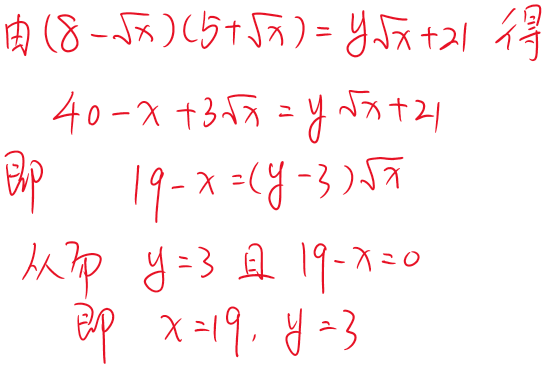 由(8-√x)(5+√x)=y√x+21 得
40-x+3√x=y√x+21
即 19-x=(y-3)√x
从而 y=3 且 19-x=0
即 x=19, y=3